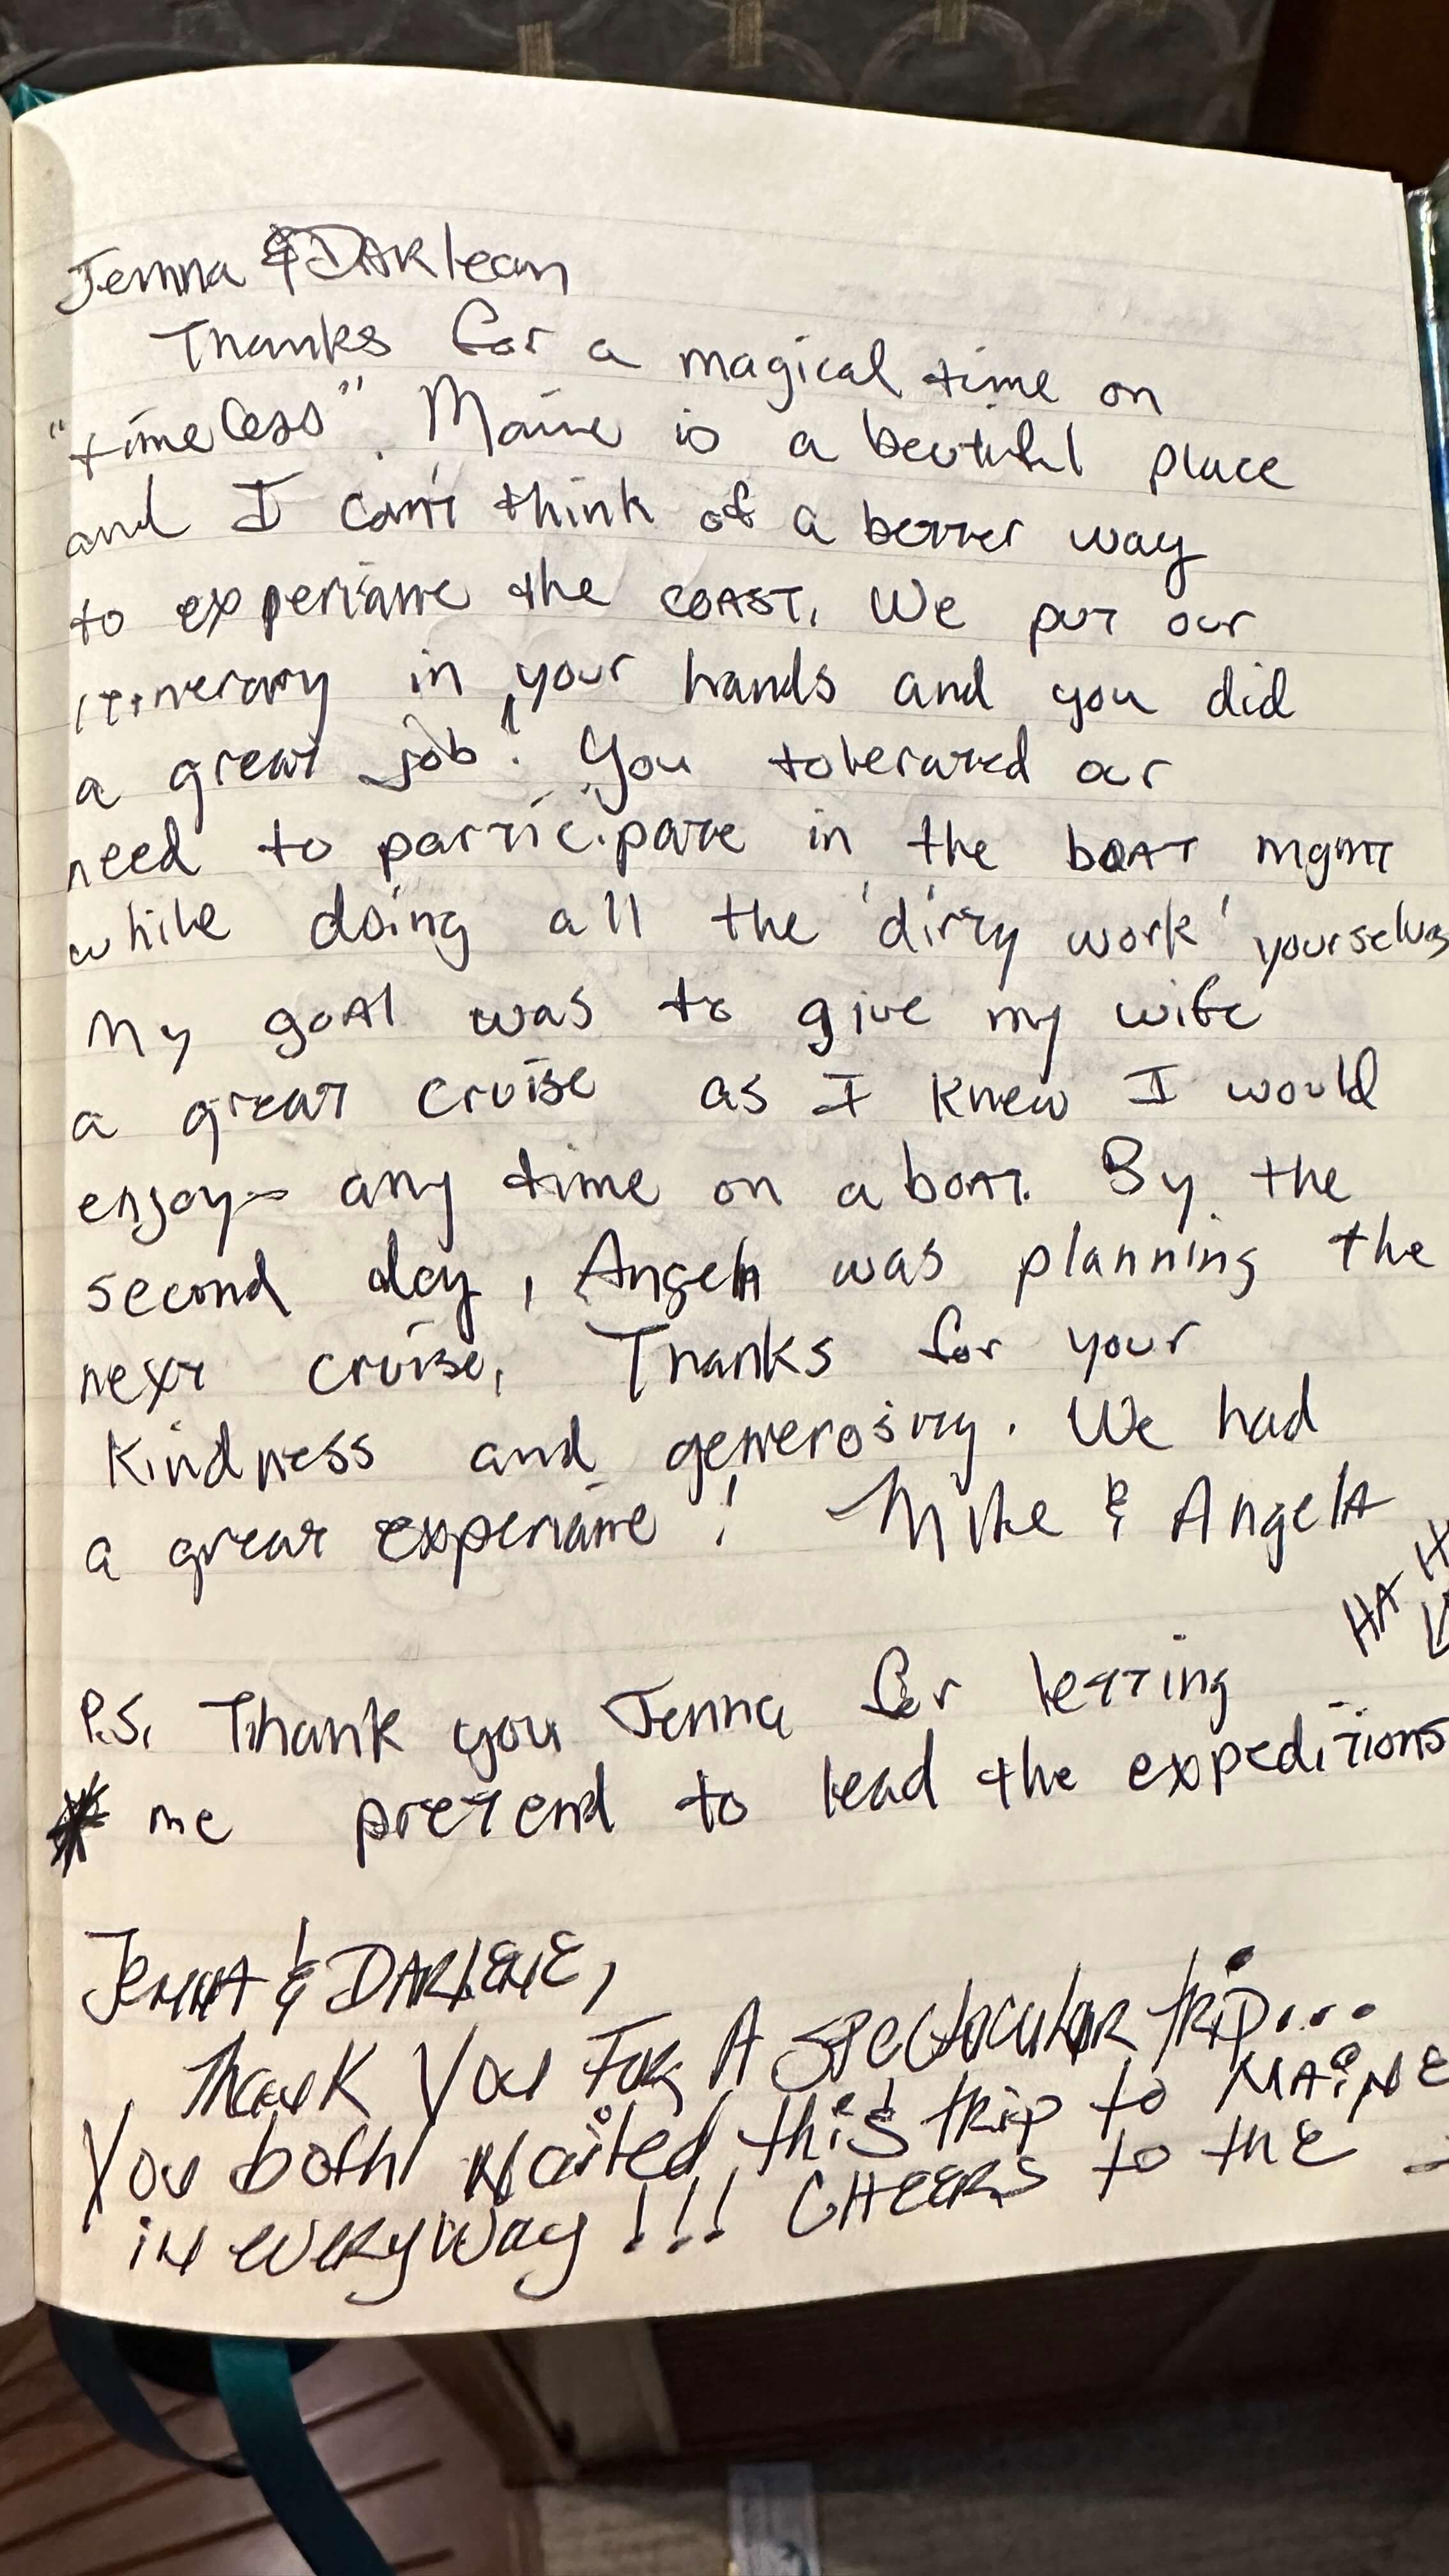 Jenna & DARlean
Thanks for a magical time on
"timeless". Maine is a beutiful place
and I can't think of a better way
to experiance the COAST. We put our
itinerary in your hands and you did
a great job! You tolerated our
need to participate in the bOAT mgmt
while doing all the 'dirty work' yourselves
My goal was to give my wife
a great cruise as I knew I would
enjoy any time on a boat. By the
second day, Angela was planning the
next cruise. Thanks for your
Kindness and generosity. We had
a great experiance! Mike & Angela
HA
P.S. Thank you Jenna for letting
me pretend to lead the expeditions
JENNA & DARLENE,
Thank You FOR A SPECtacular tRiP...
You both Nailed this tRip to MAiNE
iN EVERyWay!!! CHEERS to tHE